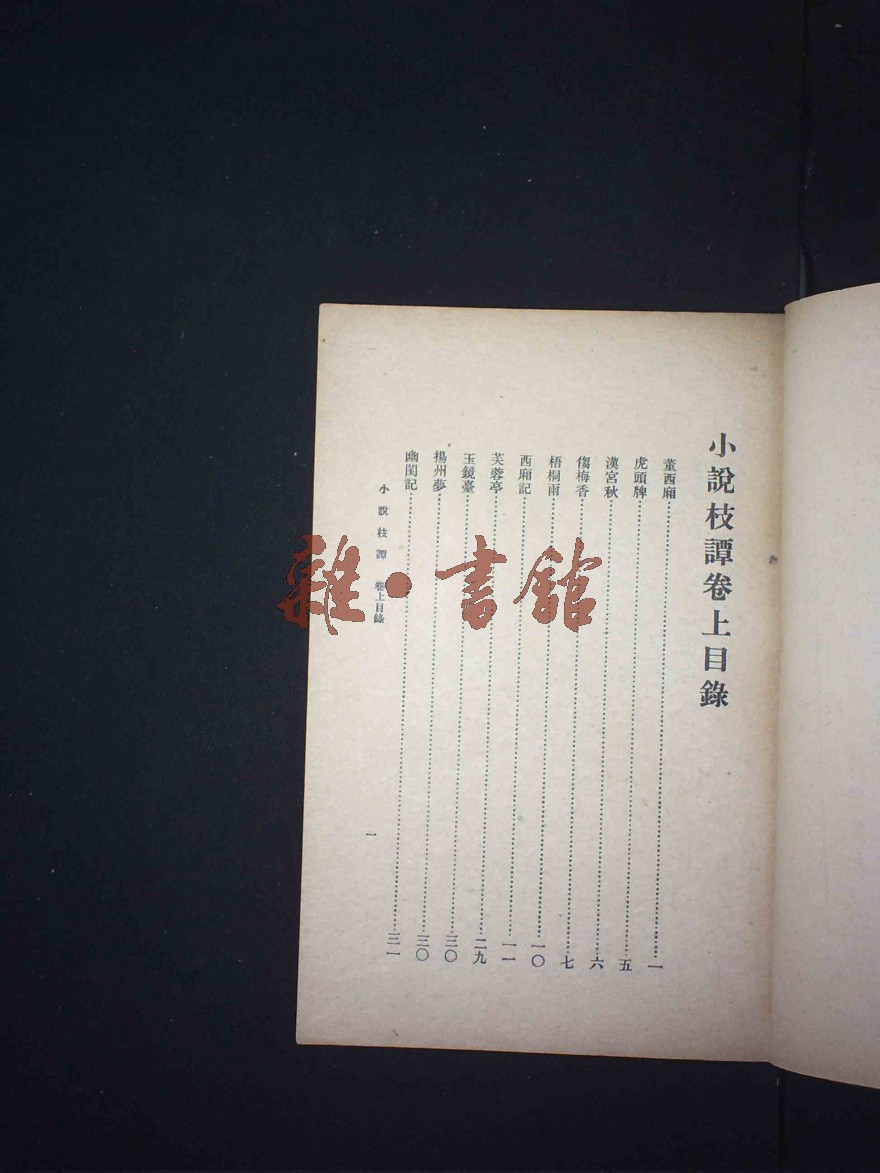 小說枝譚卷上目錄
董西廂⋯⋯一
虎頭牌⋯⋯五
漢宮秋⋯⋯六
㑳梅香⋯⋯七
梧桐雨⋯⋯一〇
西廂記⋯⋯一一
芙蓉亭⋯⋯二九
玉鏡臺⋯⋯三〇
揚州夢⋯⋯三〇
幽閨記⋯⋯三一
小說枝譚 卷上目錄
一
雜·書館